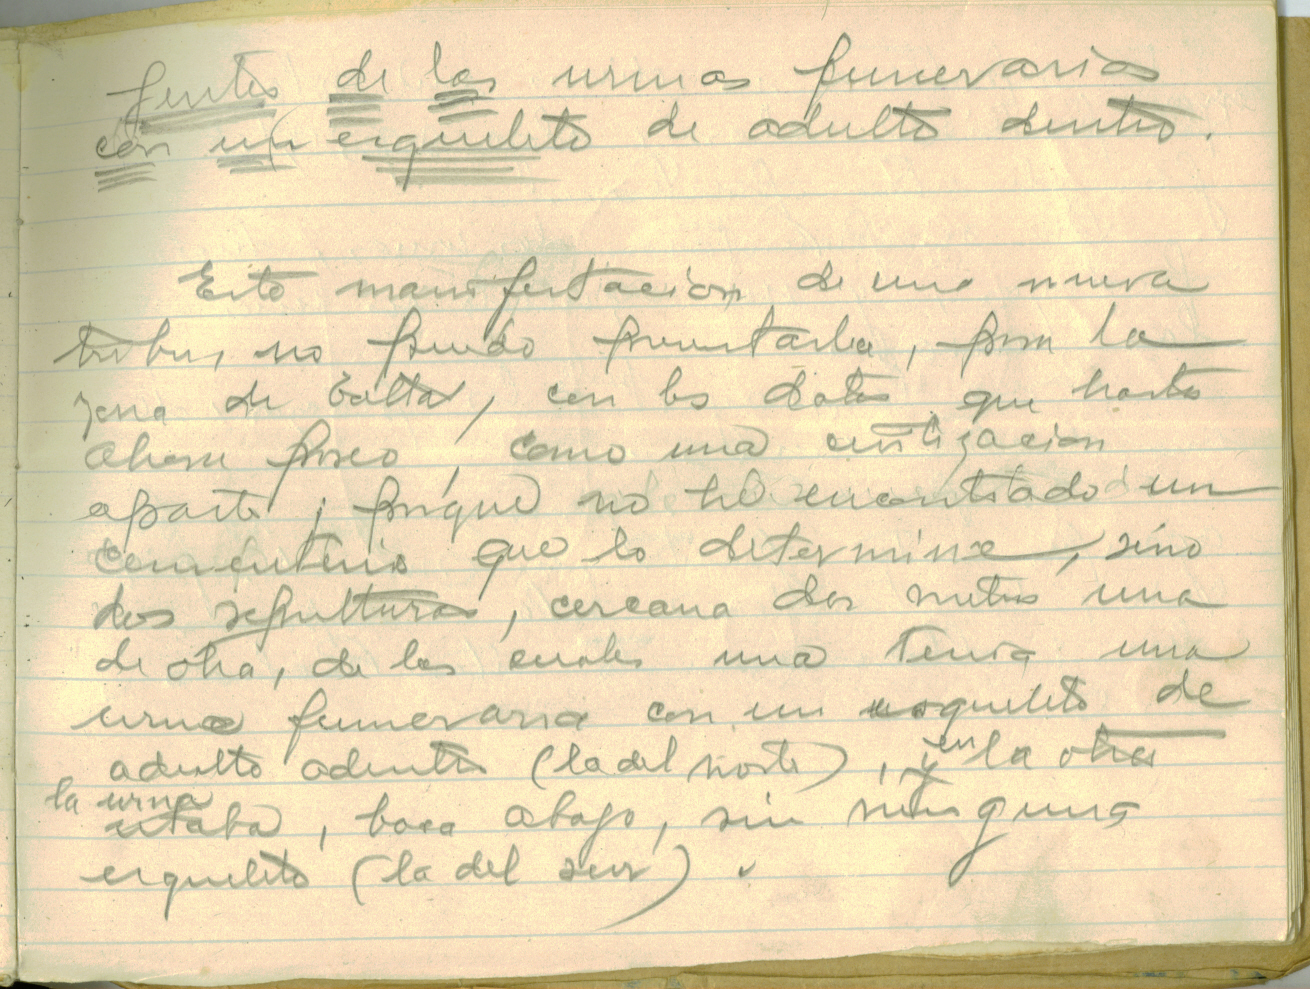 Gentes de las urnas funerarias
con un esqueleto de adulto dentro.
Esta manifestación de una nueva
tribu, no puedo presentarla, para la
zona de Salta, con los datos que hasta
ahora poseo, como una civilización
aparte; porque no he encontrado un
cementerio que lo determine, sino
dos sepulturas, cercana dos metros una
de otra, de las cuales una tenía una
urna funeraria con un esqueleto de
adulto adentro (la del norte), y en la otra
la urna estaba, boca abajo, sin ningun
esqueleto (la del sur).